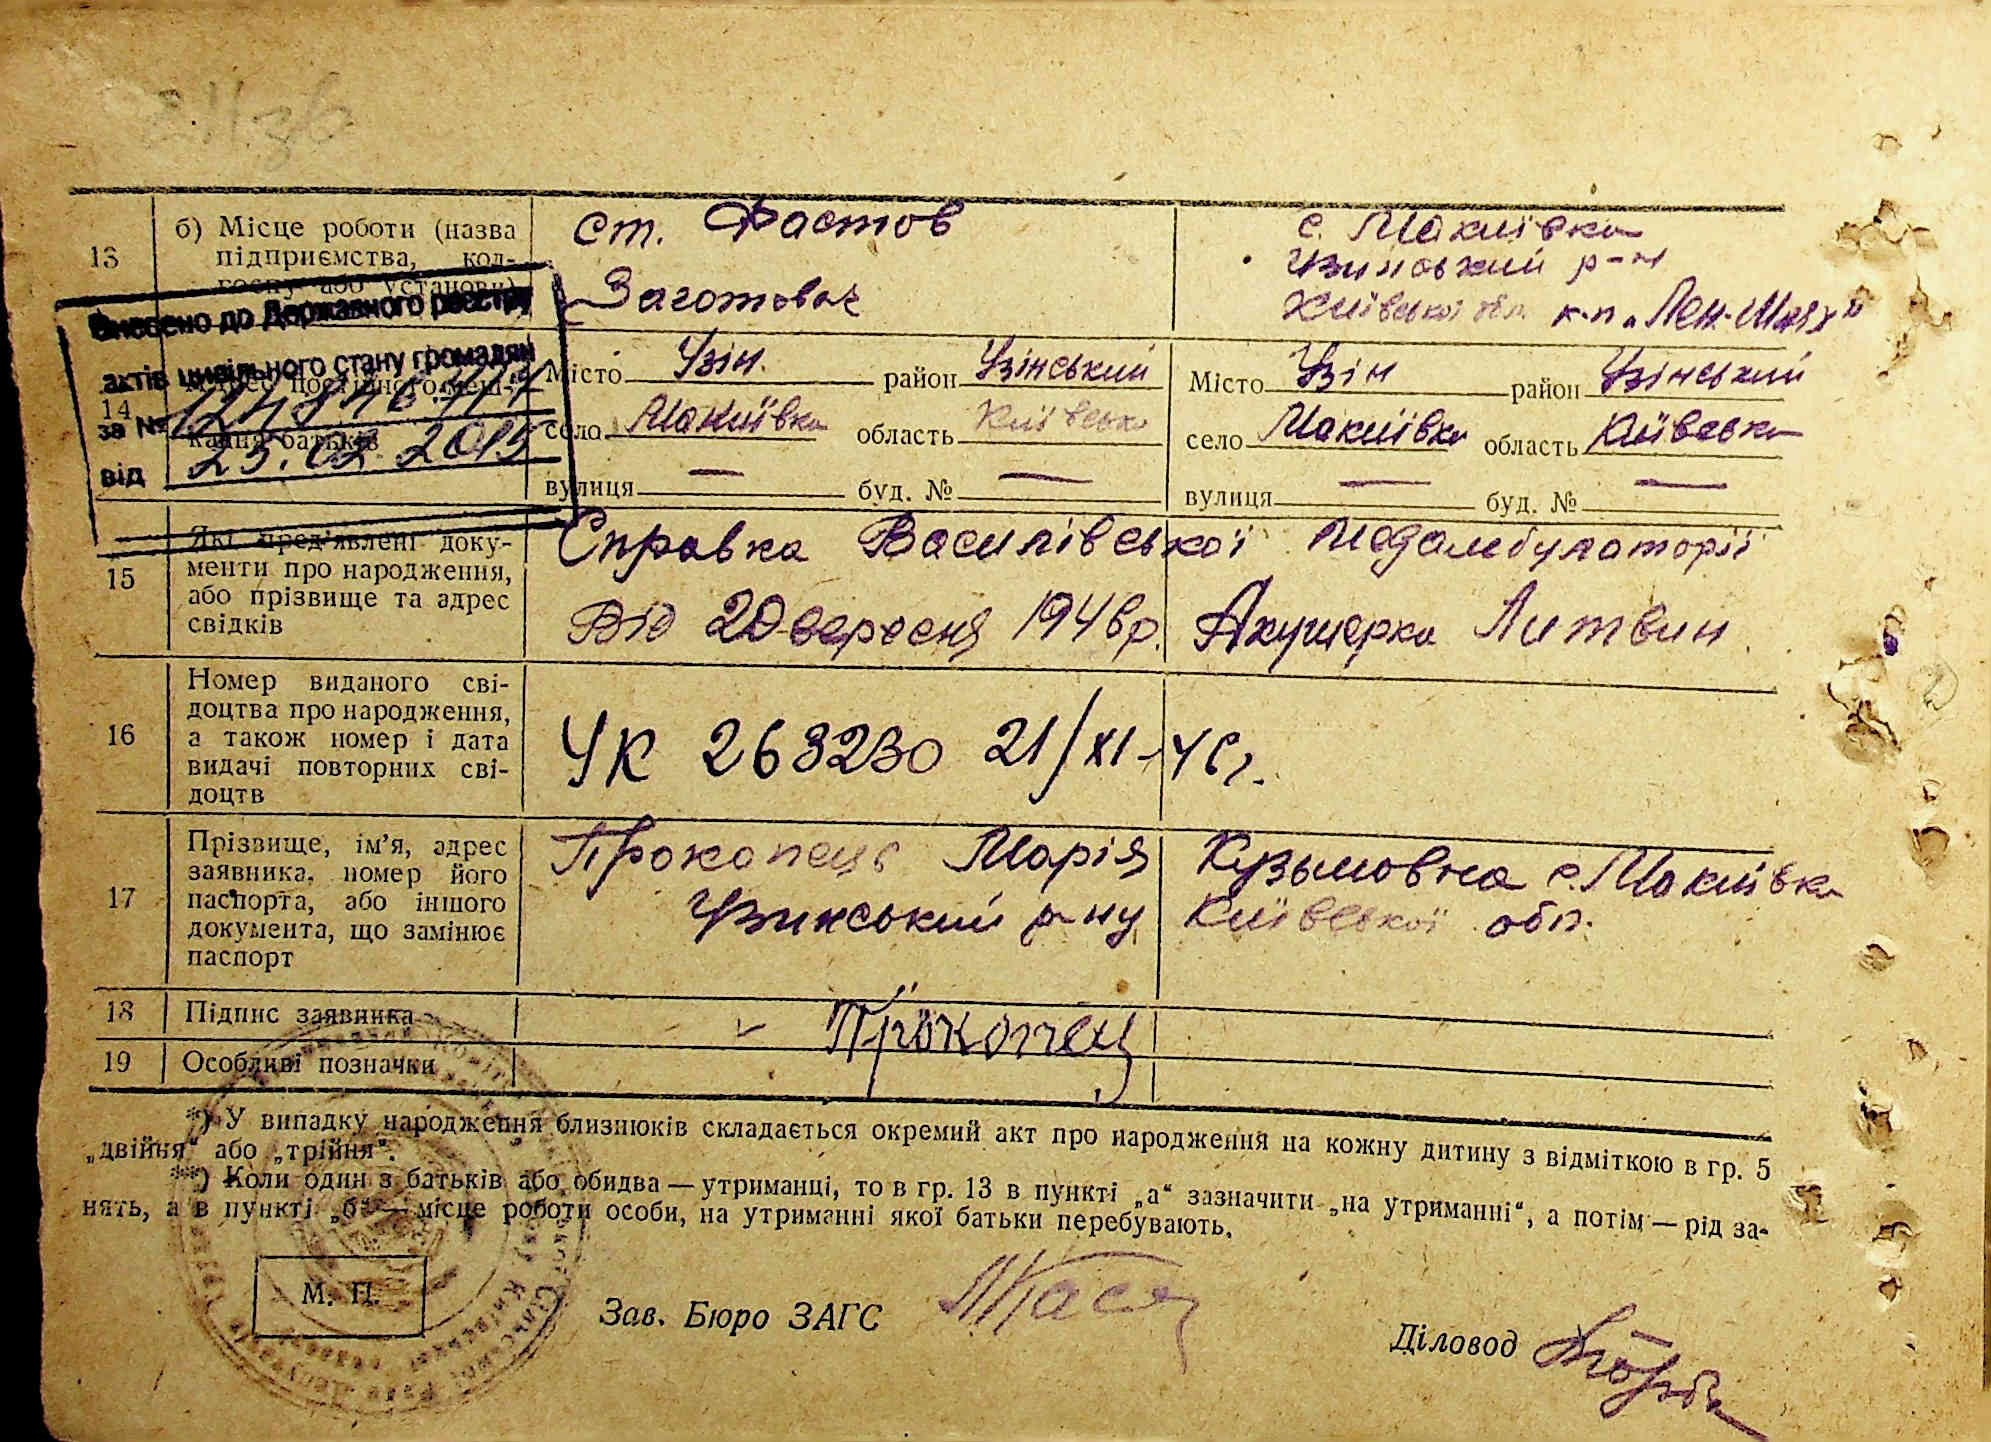 13
б) Місце роботи (назва
підприємства, кол-
госпу або установи)
ст. Фастов
с. Макиївка
Узиновский р-н
Заготовач
Київської обл. к-п „Лен. Шлях"
Внесено до Державного реєстру
актів цивільного стану громадян
за №
від 23.02.2015
14
кання батьків
Місто Узін. район Узінський
Місто Узін район Узінський
село Макиївка область Київська
село Макиївка область Київська
вулиця — буд. № —
вулиця — буд. № —
15
Які пред'явлені доку-
менти про народження,
або прізвище та адрес
свідків
Справка Василівської медамбулаторії
Від 20 вересня 1946 р. Акушерка Литвин
16
Номер виданого сві-
доцтва про народження,
а також номер і дата
видачі повторних сві-
доцтв
УК 268230 21/XI-46 г.
17
Прізвище, ім'я, адрес
заявника, номер його
паспорта, або іншого
документа, що замінює
паспорт
Прокопець Марія Кузьмовна с. Макиївка
Узинський р-ну Київської обл.
18 Підпис заявника
Прокопец
19 Особливі позначки
*) У випадку народження близнюків складається окремий акт про народження на кожну дитину з відміткою в гр. 5
„двійня" або „трійня".
**) Коли один з батьків або обидва — утриманці, то в гр. 13 в пункті „а" зазначити „на утриманні", а потім — рід за-
нять, а в пункті „б" — місце роботи особи, на утриманні якої батьки перебувають.
М. П.
Зав. Бюро ЗАГС
Діловод